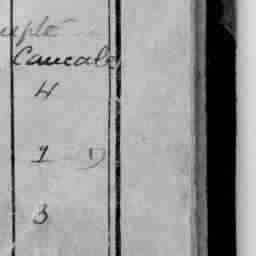 uple
Caucale
4
1
3